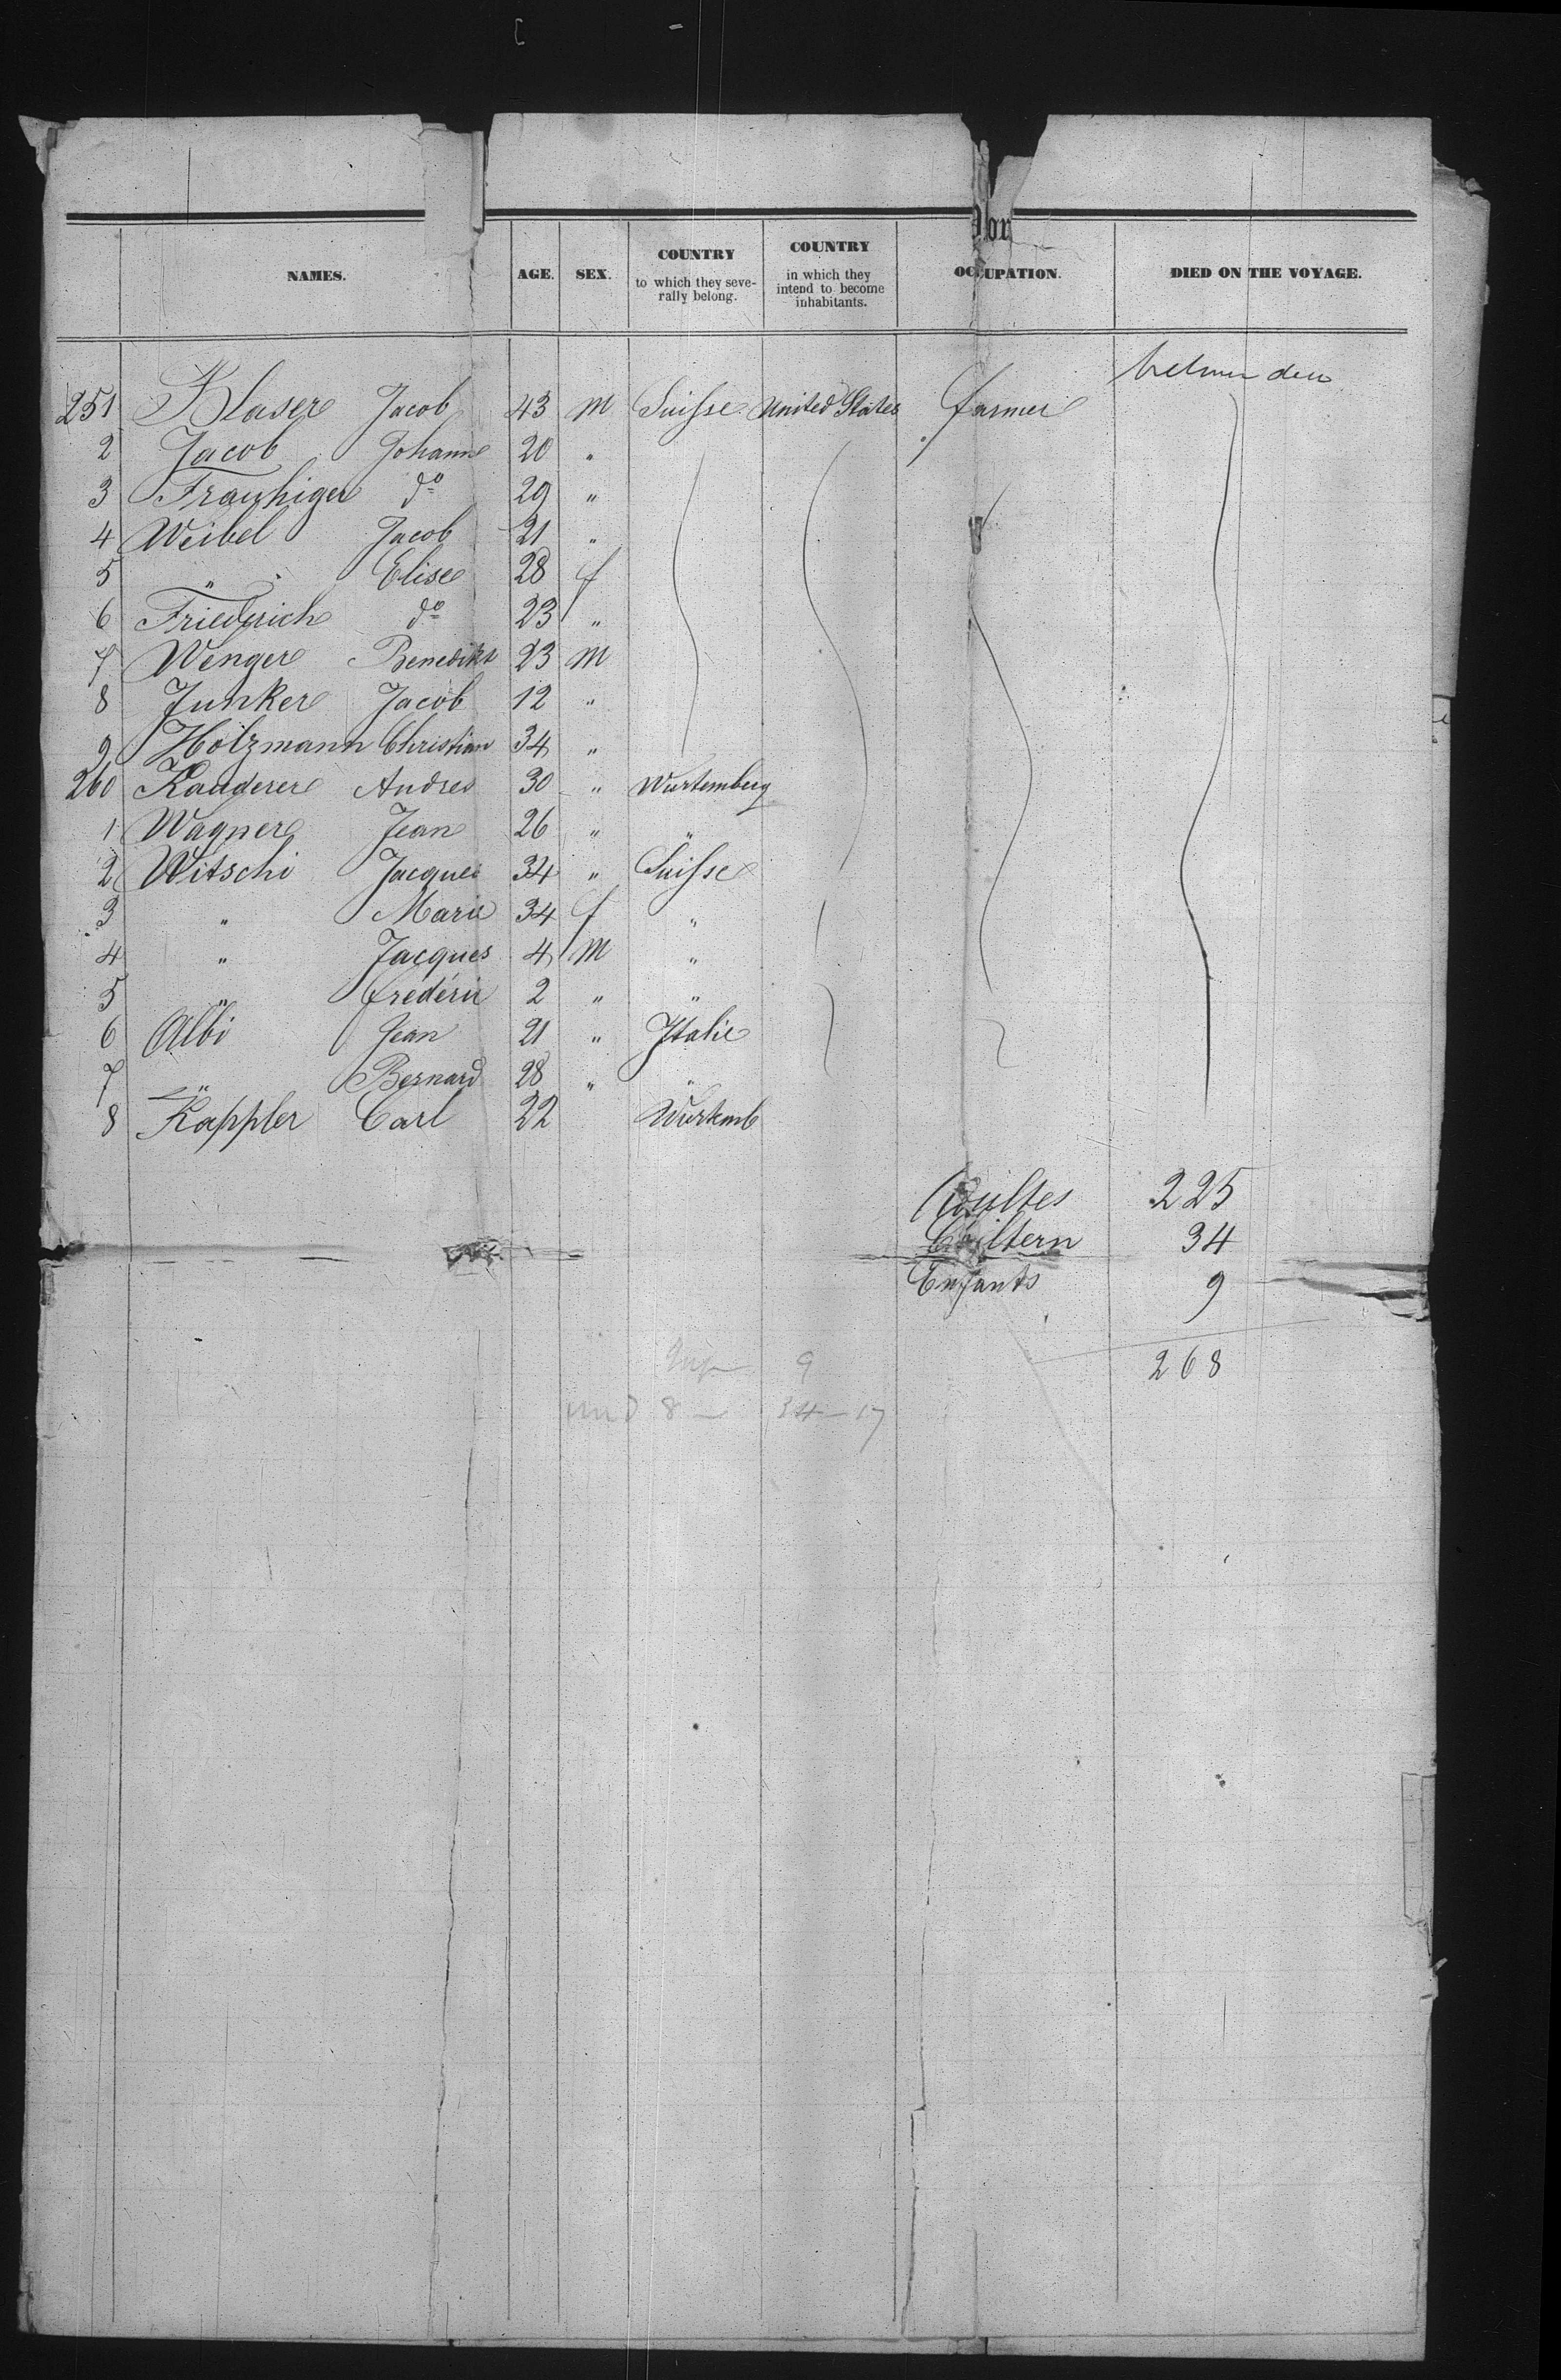 NAMES. AGE. SEX. COUNTRY to which they severally belong. COUNTRY in which they intend to become inhabitants. OCCUPATION. DIED ON THE VOYAGE.
between deck
251 Blaser Jacob 43 M Suisse United States farmer
2 Jacob Johann 20 "
3 Frauhiger do 29 "
4 Weibel Jacob 21 "
5 " Elise 28 f
6 Friederich do 23 "
7 Wenger Benedikt 23 M
8 Junker Jacob 12 "
9 Holzmann Christian 34 "
260 Kauderer Andres 30 " Wurtemberg
1 Wagner Jean 26 " "
2 Witschi Jacques 34 " Suisse
3 " Marie 34 f "
4 " Jacques 4 M "
5 " frédéric 2 " "
6 Albi Jean 21 " Italie
7 " Bernard 28 " "
8 Kappler Carl 22 Wurtemb
Adultes 225
Chiltern 34
Enfants 9
268
9
8 — 34 — 17